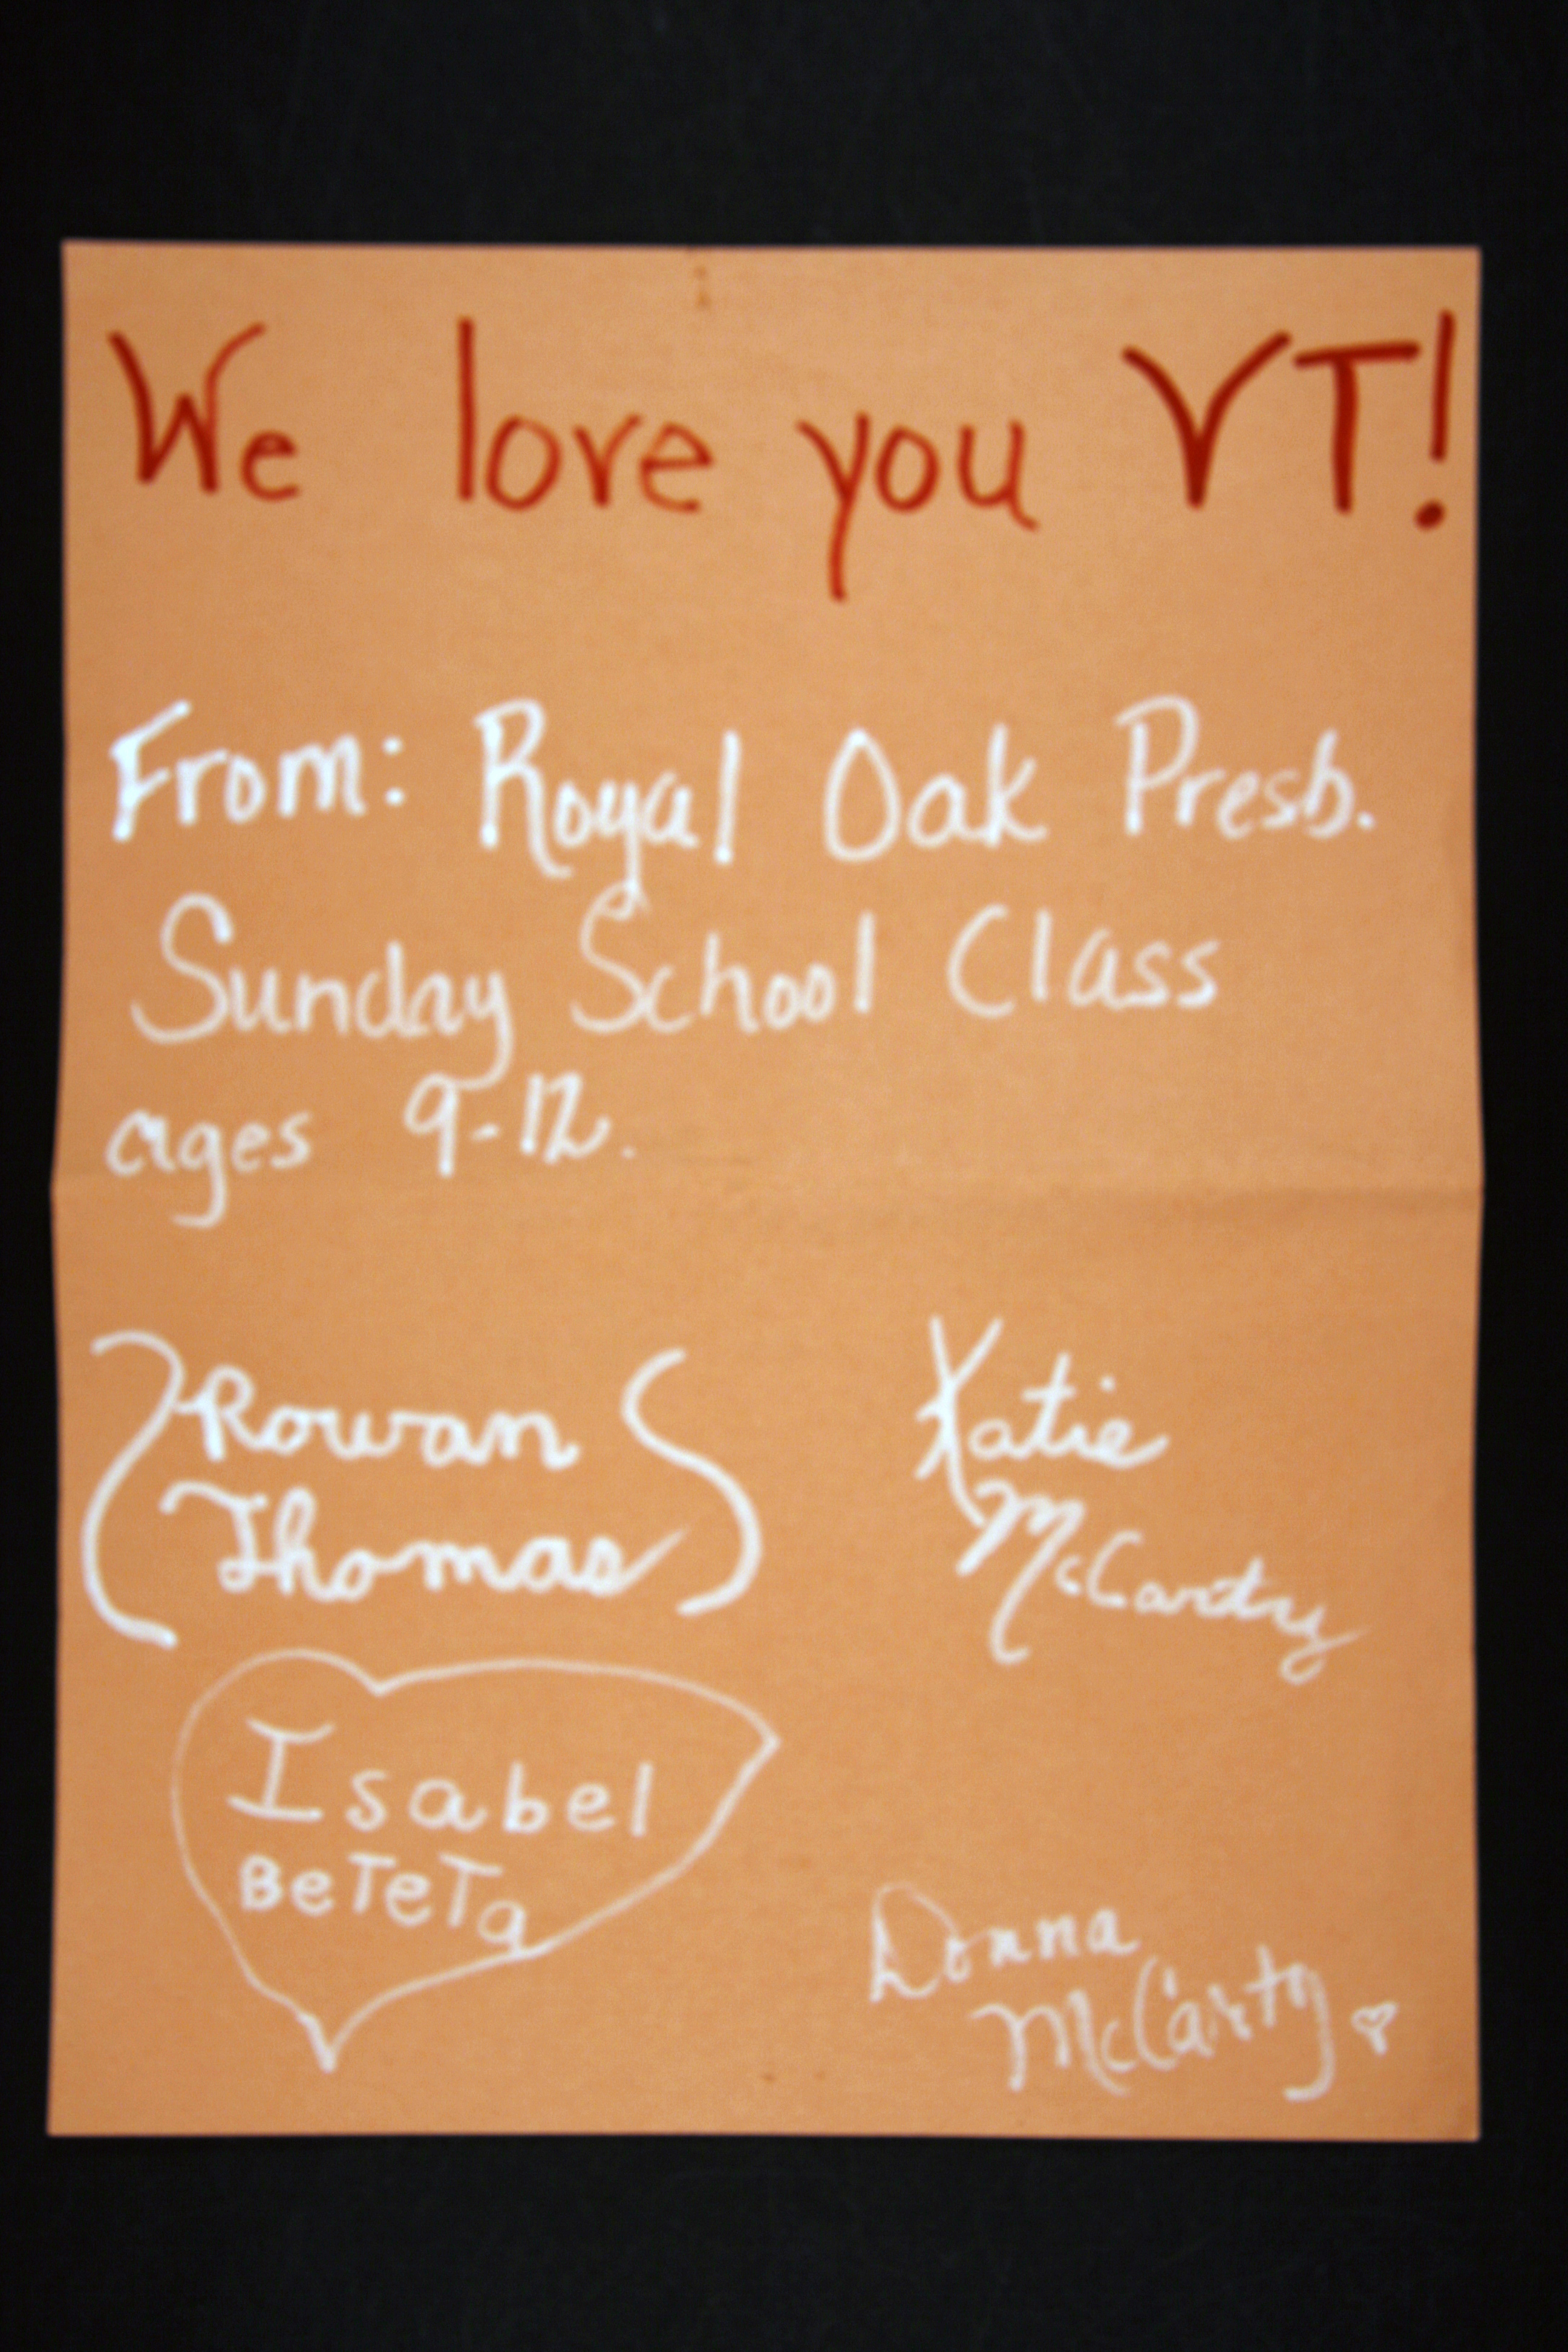 We love you VT!
From: Royal Oak Presb.
Sunday School Class
ages 9-12.
Rowan
Thomas
Katie
McCarty
Isabel
BeTeTa
Donna
McCarty